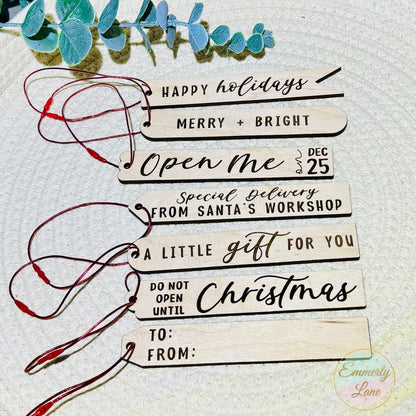 HAPPY holidays
MERRY + BRIGHT
Open Me on DEC 25
Special Delivery
FROM SANTA'S WORKSHOP
A LITTLE gift FOR YOU
DO NOT OPEN UNTIL Christmas
TO:
FROM:
Emmerly
Lane